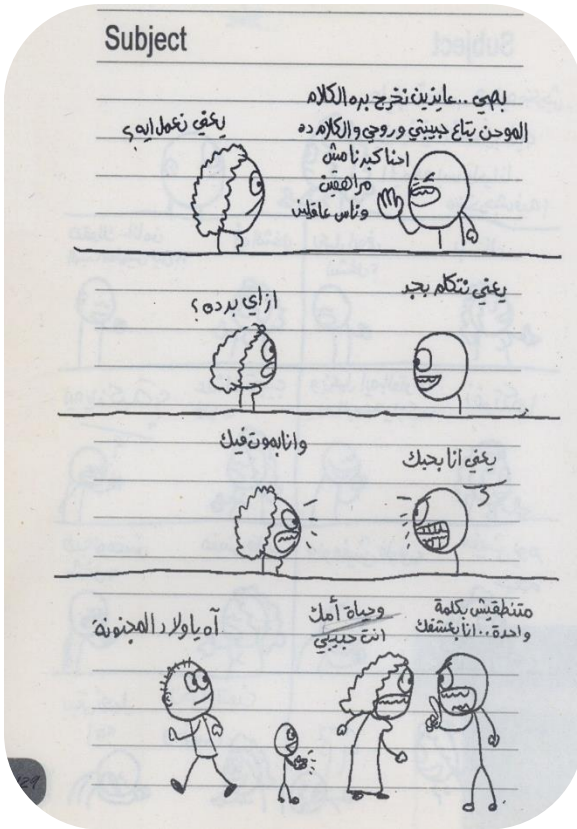 Subject
بصي.. عايزين نخرج بره الكلام
الموحن بتاع حبيبتي وروحي والكلام ده
احنا كبرنا مش
مراهقين
وناس عاقلين
يعني نعمل ايه؟
يعني نتكلم بجد
ازاى برده؟
يعني انا بحبك
وانا بموت فيك
متنطقيش بكلمة
واحدة.. انا بعشقك
وحياة أمك
انت حبيبي
آه ياولاد المجنونة
129